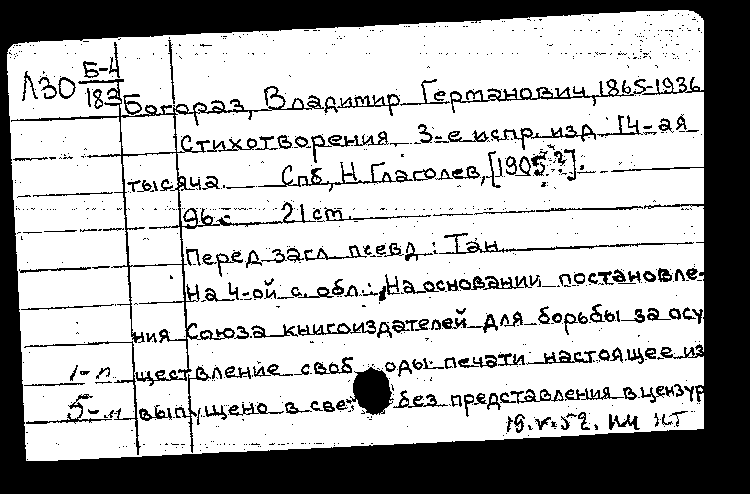 Л30 Б-4
183
Богораз, Владимир Германович, 1865-1936
Стихотворения. 3-е испр. изд. 14-ая
тысяча. Спб, Н. Глаголев, [1905?].
96 с. 21 cm.
Перед загл. псевд.: Тан
На 4-ой с. обл.: "На основании постановле-
ния Союза книгоиздателей для борьбы за осу
1-п ществление свободы печати настоящее из
5-м выпущено в све без представления в цензур
19.V.52. НМ